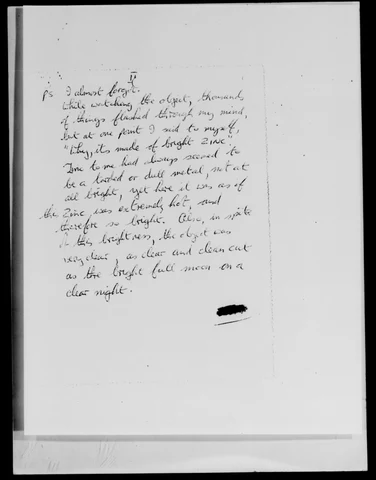 PS I almost forgot.
While watching the object, thousands
of things flashed through my mind,
but at one point I said to myself,
"Why, its made of bright Zinc".
Zinc to me had always seemed to
be a or dull metal, not at
all bright, yet here it was as if
the Zinc was extremely hot, and
therefore so bright. Also, in spite
of this brightness, the object was
very clear, as clear and clean cut
as the bright full moon on a
clear night.